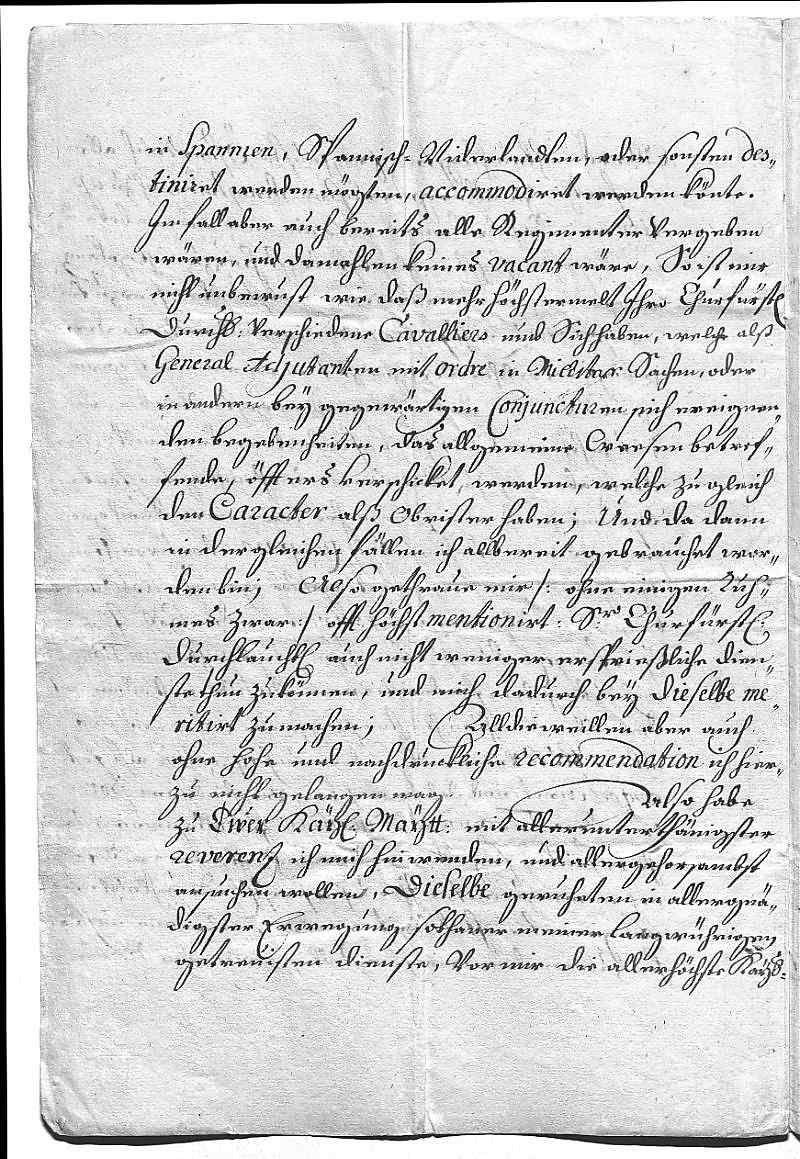 in Spannien, Spannisch-Niderlandten, oder sonsten des-
tiniret werden mögten, accommodiret werden könte.
Im fall aber auch bereits alle Regimenter vergeben
wären, und damahlen keines vacant wäre, So ist mir
nicht unbewust wie daß mehr höchstermelt Ihro Churfürstl
Durchl: verschiedene Cavalliers umb Sich haben, welche alß
General Adjutanten mit ordre in Militar Sachen, oder
in andern bey gegewärtigen Conjuncturen sich ereignen-
den begebenheiten, das allgemeine Weesen betref-
fende, öffters verschicket, werden, welche zugleich
den Caracter alß Obrister haben; Und da dann
in dergleichen fällen ich allbereit gebrauchet wor-
den bin; Also getraue mir /: ohne einigen Ruh-
mes zwar :/ offt höchst mentionirt: Sr Churfürstl:
Durchlaucht auch nicht weniger ersprießliche dien-
ste thun zu können, und mich dadurch bey dieselbe me-
ritirt zu machen; Alldieweillen aber auch
ohne hohe und nachdrückliche recommendation ich hier-
zu nicht gelangen mag Also habe
zu Ewer Kayl. Maytt: mit allerunterthänigster
reverentz ich mich hinwenden, und allergehorsambst
ansuchen wollen, Dieselbe geruheten in allergnä-
digster Erwegung sothaner meiner langwührigen
getreuisten dienste, Vor mir die allerhöchste Kayßl: